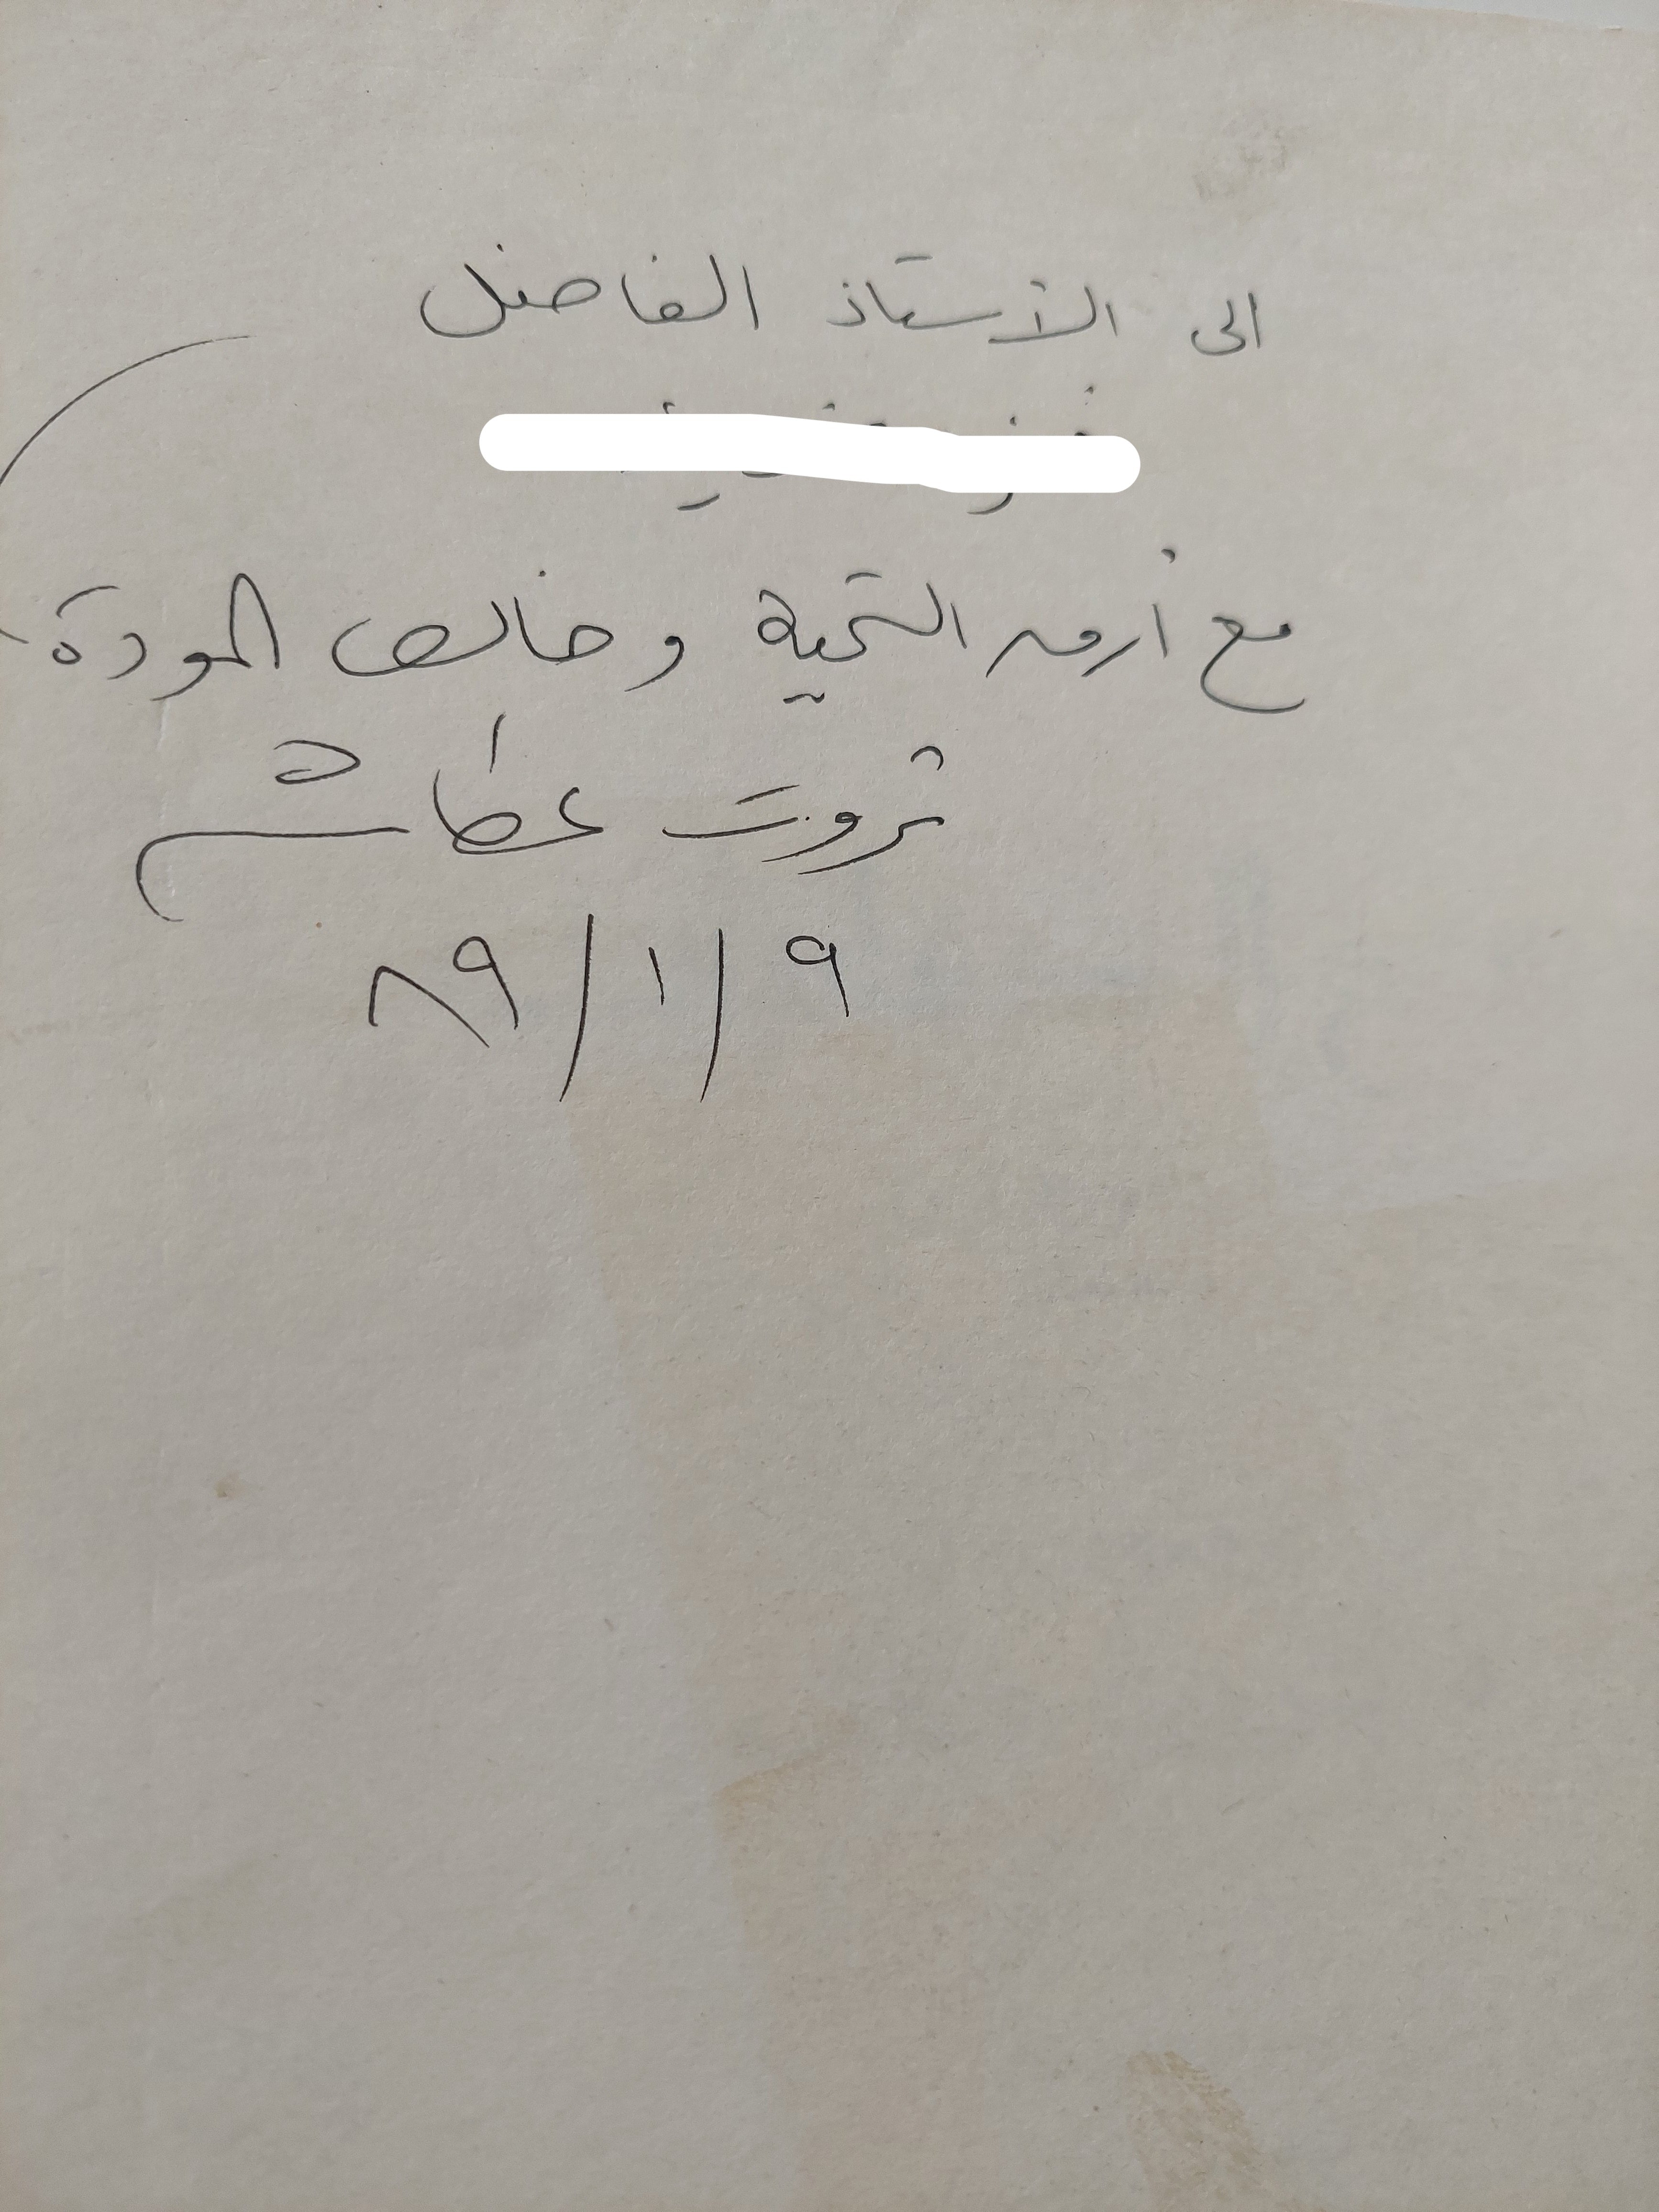 الى الأستاذ الفاضل
مع أرق التحية وخالص المودة
ثروت عكاشة
٩/١/٨٩